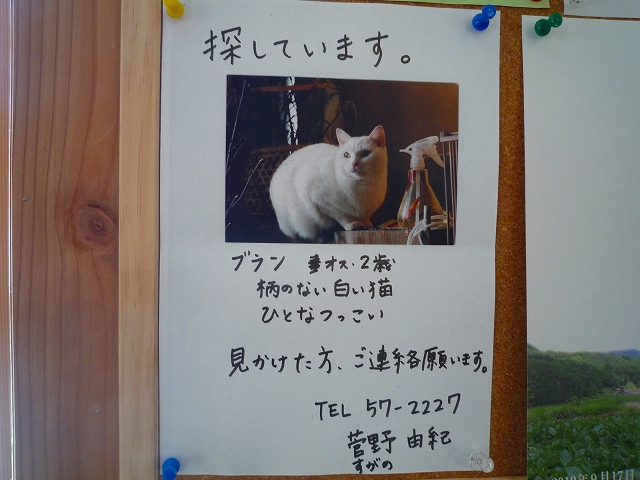 探しています。
ブラン オス・2歳
柄のない白い猫
ひとなつっこい
見かけた方、ご連絡願います。
TEL 57-2227
菅野 由紀
すがの